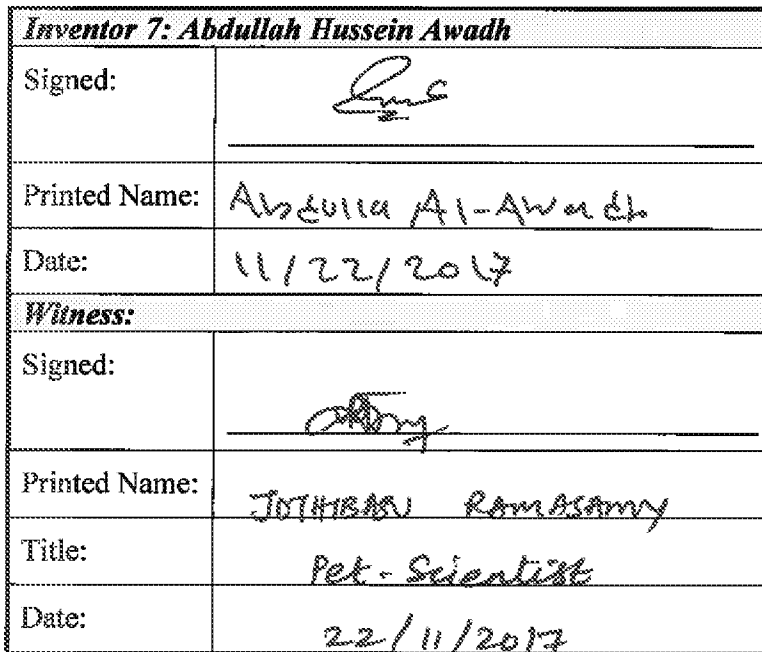 Inventor 7: Abdullah Hussein Awadh
Signed:
Printed Name: Abdulla Al-Awadh
Date: 11/22/2017
Witness:
Signed:
Printed Name: JOTHIBASU RAMASAMY
Title: Pet. Scientist
Date: 22/11/2017